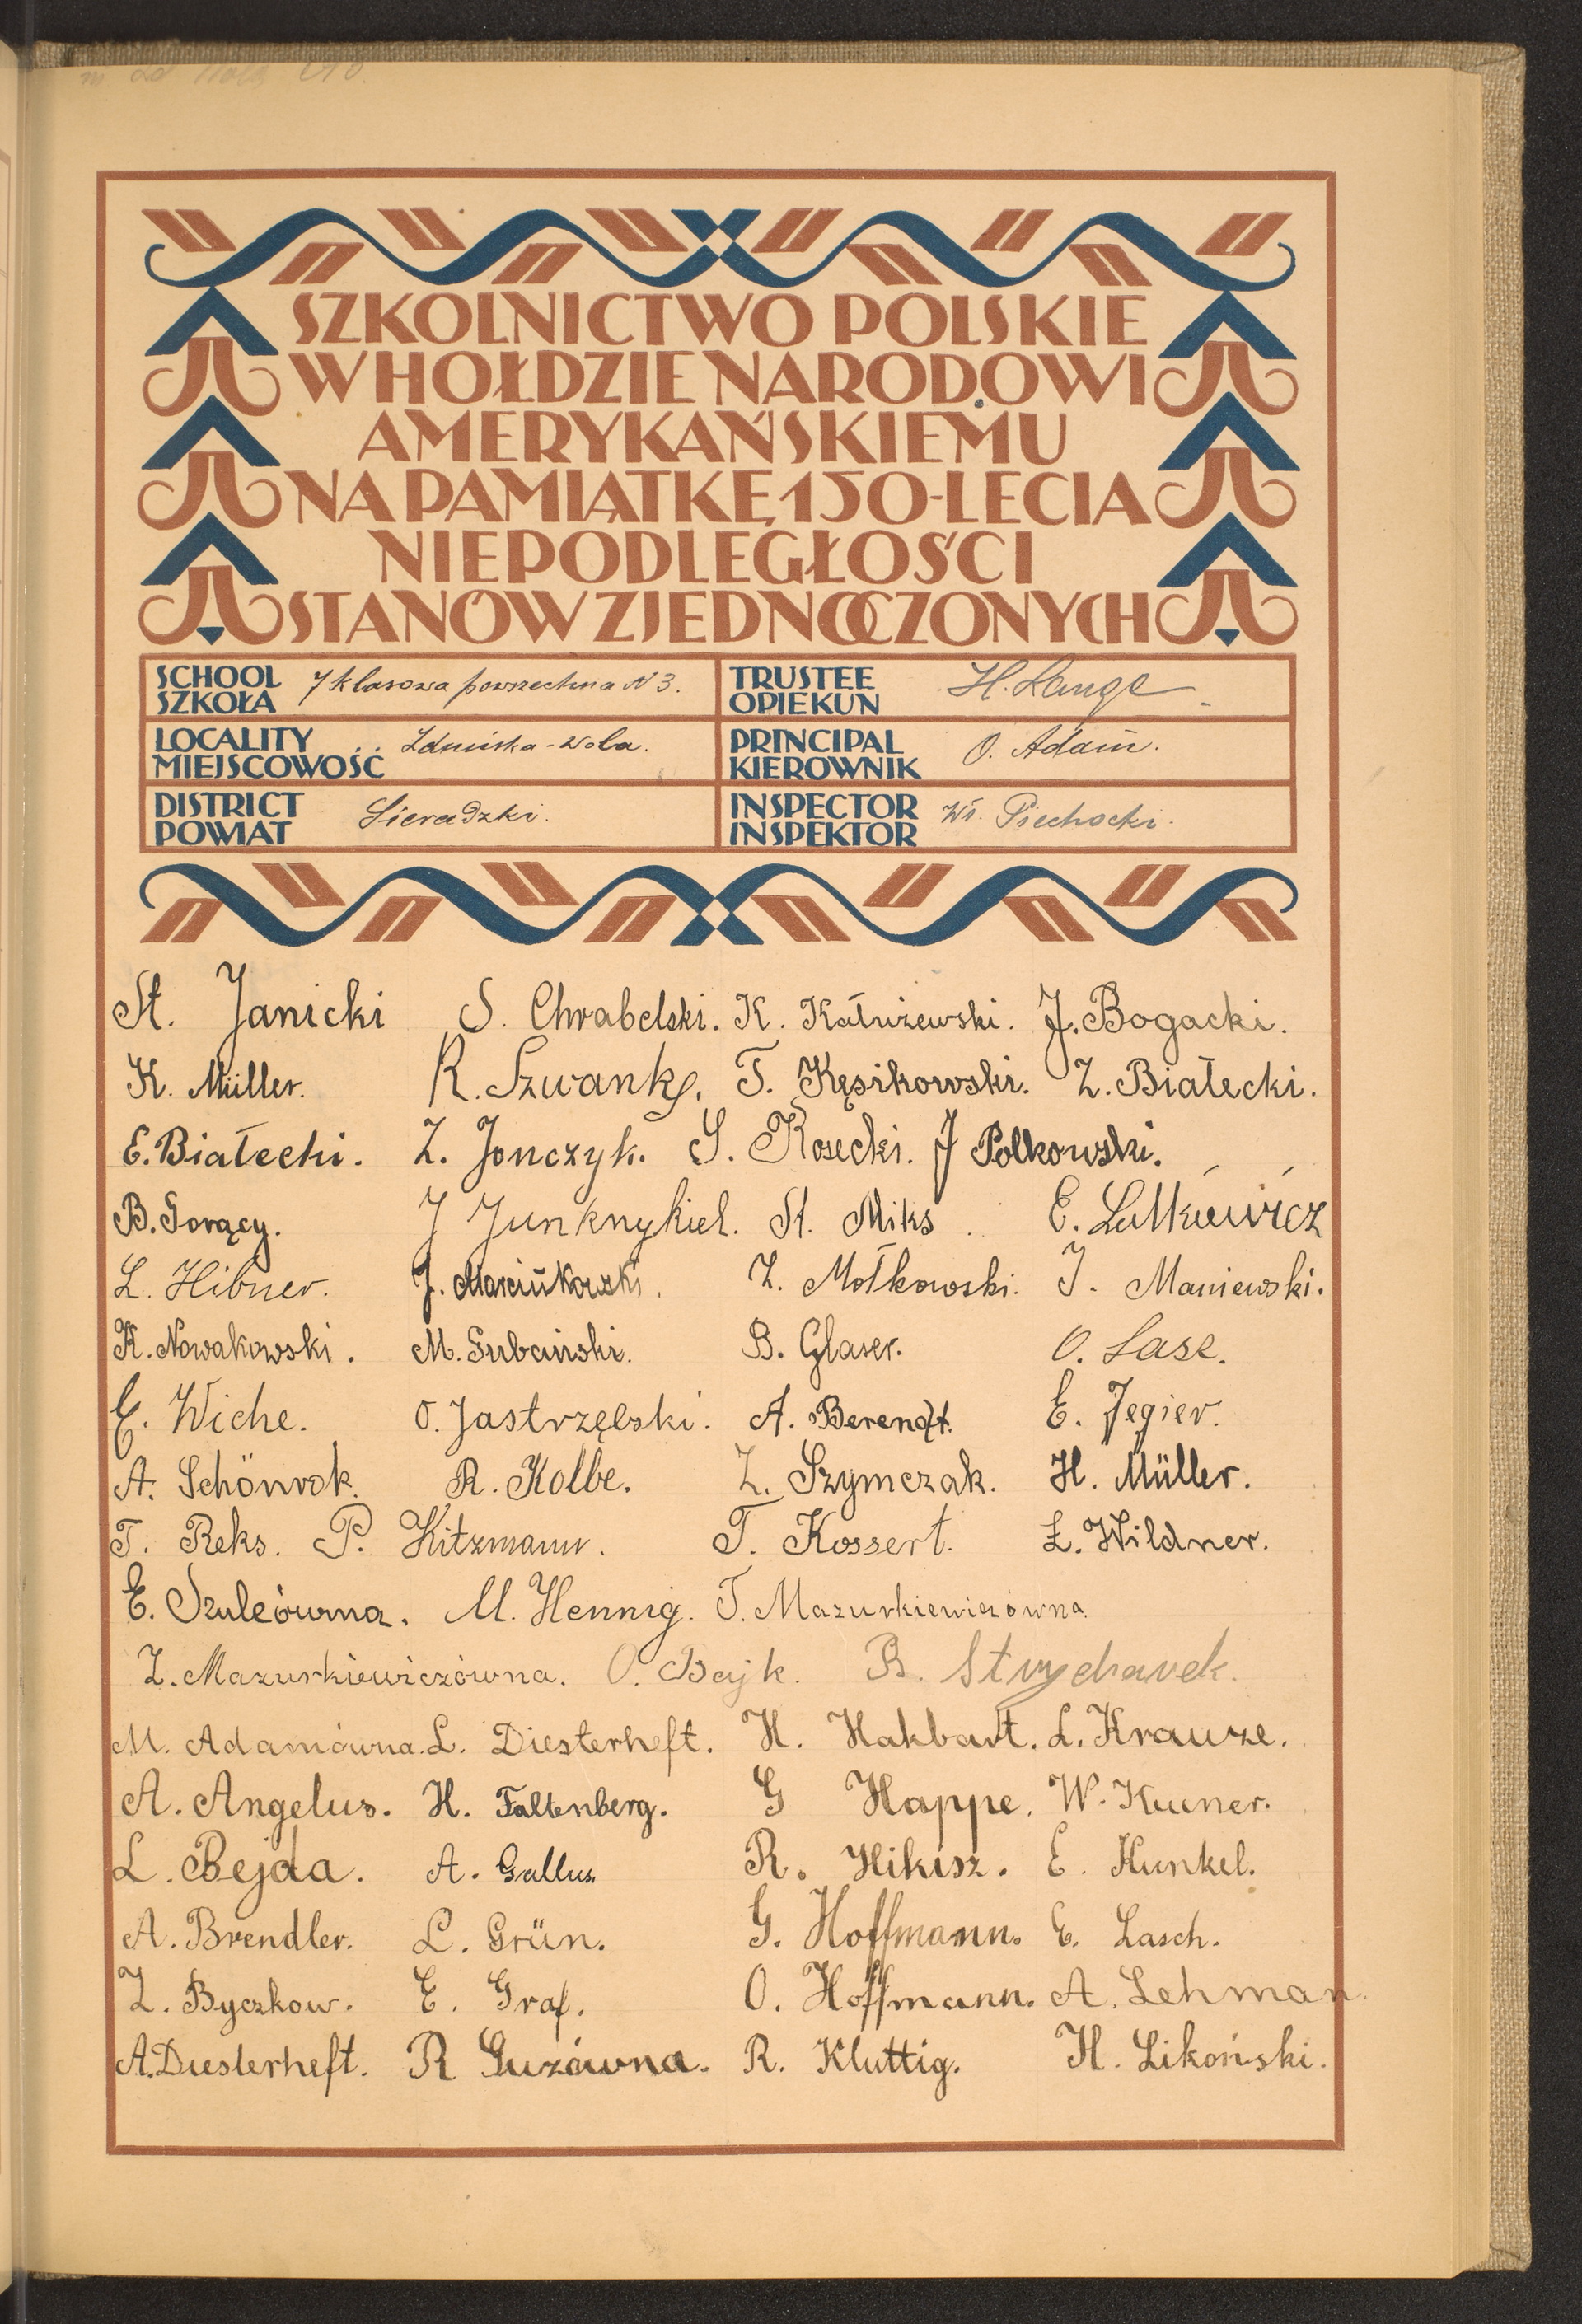 SZKOLNICTWO POLSKIE
W HOŁDZIE NARODOWI
AMERYKAŃSKIEMU
NA PAMIĄTKĘ 150-LECIA
NIEPODLEGŁOŚCI
STANÓW ZJEDNOCZONYCH
SCHOOL SZKOŁA 7 klasowa powszechna N 3. TRUSTEE OPIEKUN H. Lange
LOCALITY MIEJSCOWOŚĆ Zduńska-Wola. PRINCIPAL KIEROWNIK O. Adam.
DISTRICT POWIAT Sieradzki. INSPECTOR INSPEKTOR Wł. Piechocki.
St. Janicki S. Chrabelski. K. Kałużewski. J. Bogacki.
K. Müller. R. Szwanke. T. Kęsikowski. Z. Białecki.
E. Białecki. Z. Jonczyk. S. Kosecki. J Polkowski.
B. Gorący. J Junknykiel. St. Miks. E. Lutkiewicz
L. Hibner. J. Marcinkowski. Z. Mołkowski. J. Maniewski.
K. Nowakowski. M. Gubański. B. Glaser. O. Lase.
E. Wiche. O. Jastrzębski. A. Berendt. E. Jegier.
A. Schönrok. R. Kolbe. Z. Szymczak. H. Müller.
T. Reks. P. Kitzmann. T. Kossert. Ł. Wildner.
E. Szulcówna. M. Hennig. T. Mazurkiewiczówna.
Z. Mazurkiewiczówna. O. Bajk. B. Strycharek.
M. Adamówna. L. Diesterheft. H. Hakbart. L. Krauze.
A. Angelus. H. Faltenberg. G Happe. W. Kuener.
L. Bejda. A. Gallus. R. Hikisz. E. Kunkel.
A. Brendler. L. Grün. G. Hoffmann. E. Lasch.
Z. Byczkow. E. Graf. O. Hoffmann. A. Lehman.
A. Diesterheft. R Guzówna. R. Kluttig. H. Likoński.